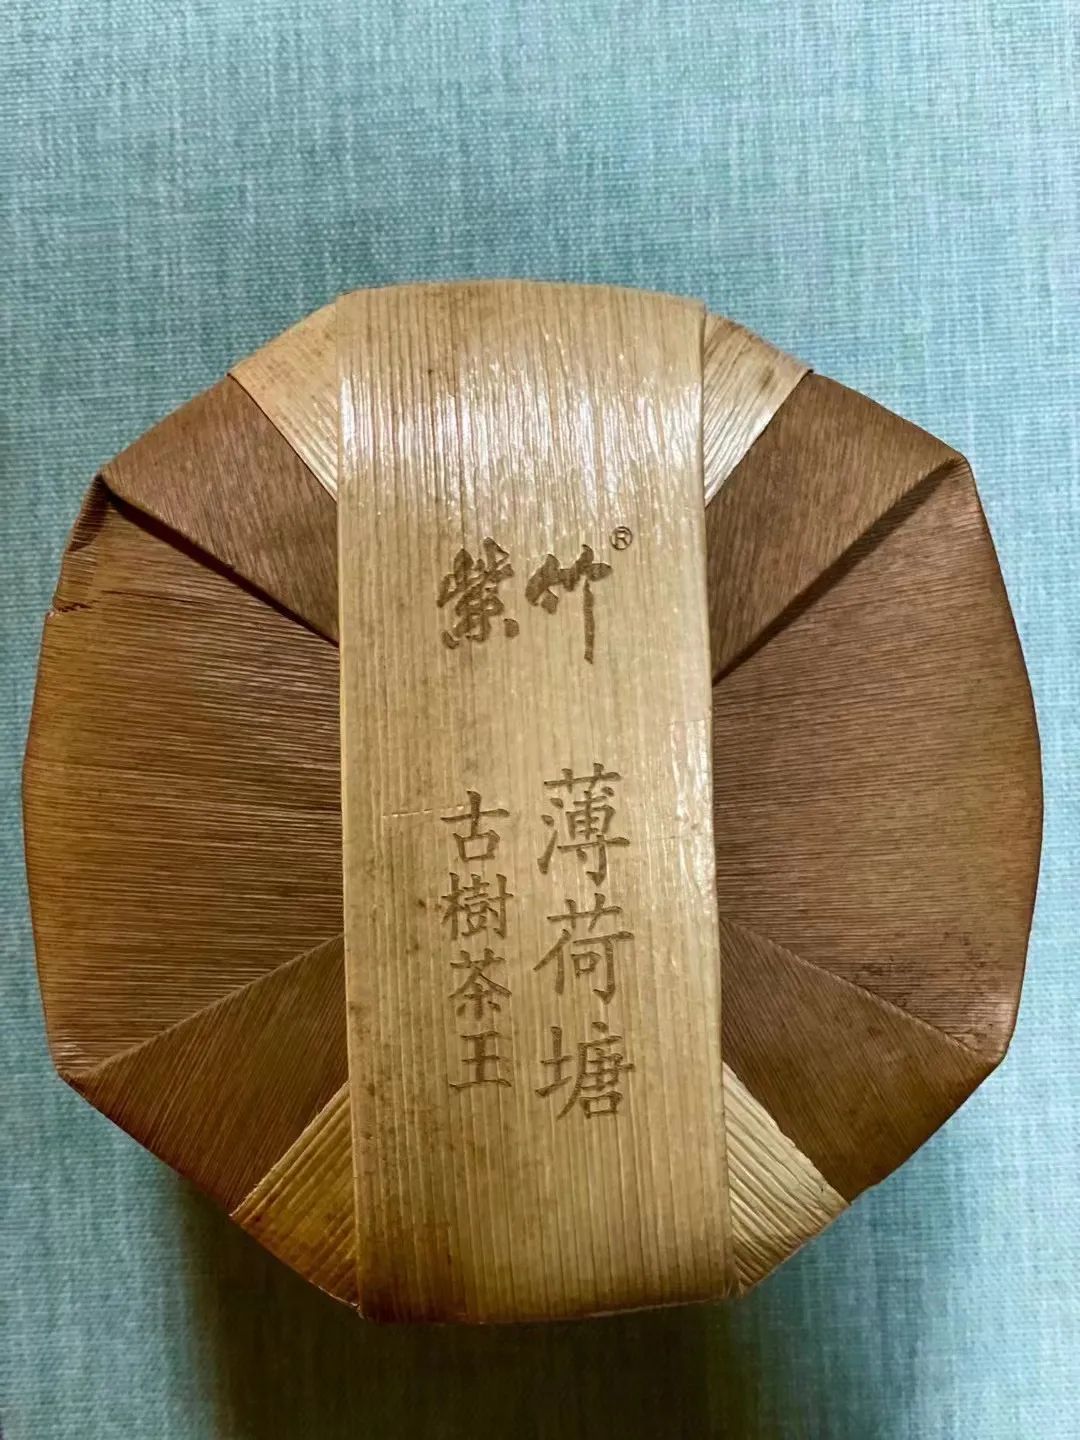 紫竹®
薄荷塘
古樹茶王